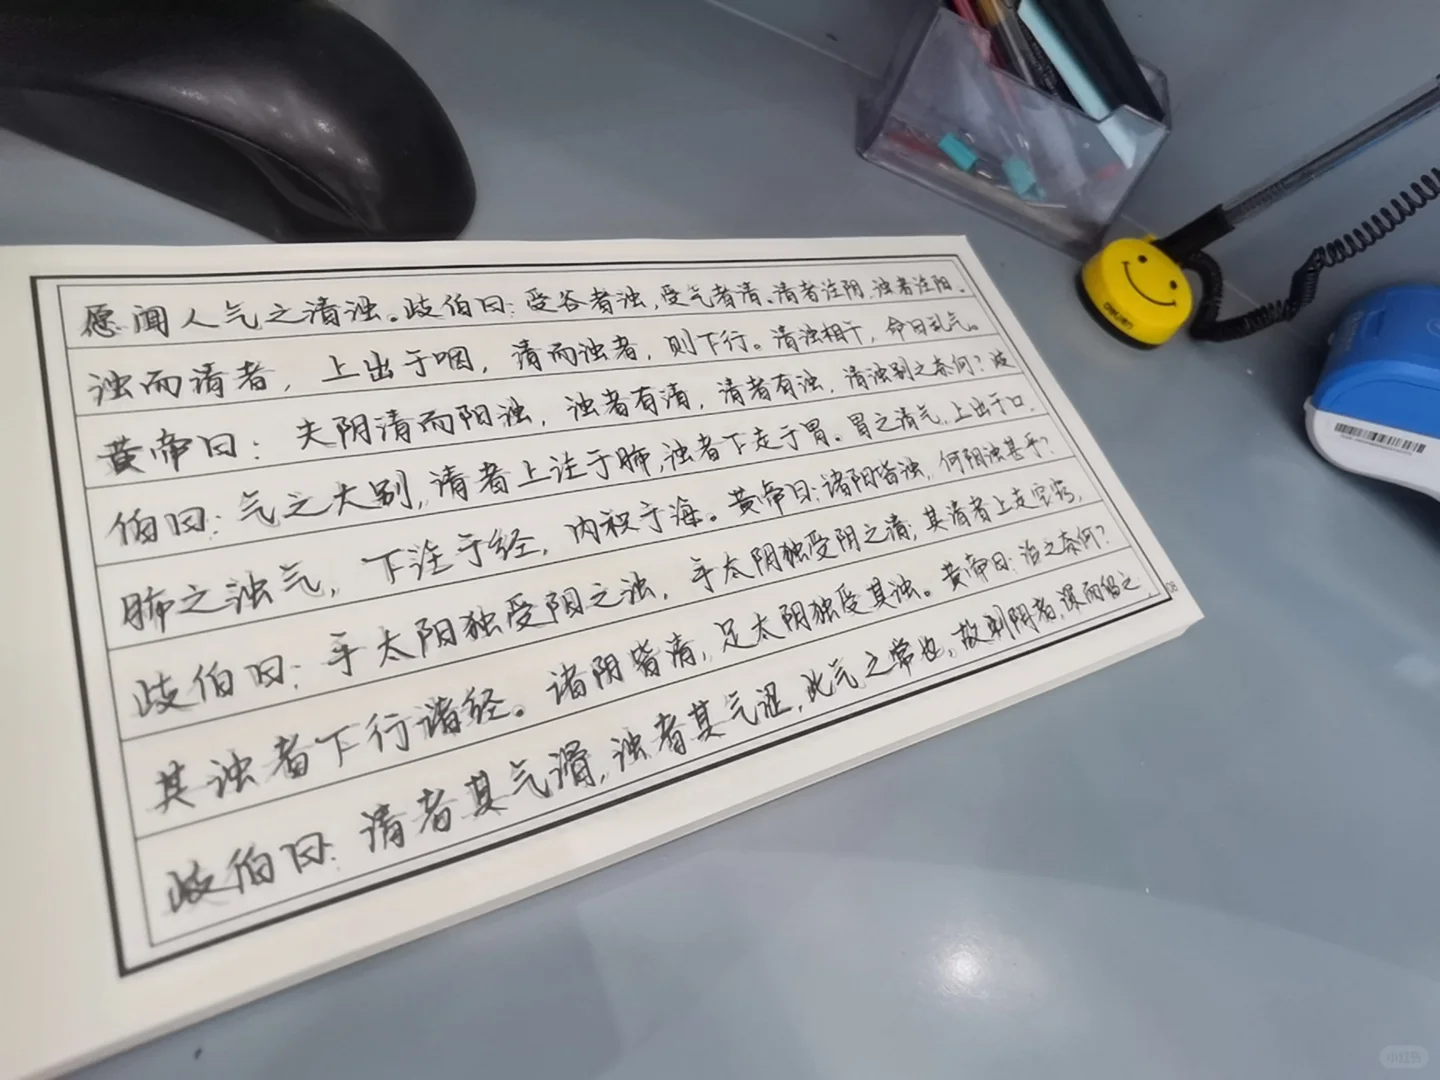 愿闻人气之清浊。岐伯曰：受谷者浊，受气者清。清者注阴，浊者注阳。
浊而清者，上出于咽，清而浊者，则下行。清浊相干，命曰乱气。
黄帝曰：夫阴清而阳浊，浊者有清，清者有浊，清浊别之奈何？岐
伯曰：气之大别，清者上注于肺，浊者下走于胃。胃之清气，上出于口，
肺之浊气，下注于经，内积于海。黄帝曰：诸阳皆浊，何阳浊甚乎？
岐伯曰：手太阳独受阳之浊，手太阴独受阴之清；其清者上走空窍，
其浊者下行诸经。诸阴皆清，足太阴独受其浊。黄帝曰：治之奈何？
岐伯曰：清者其气滑，浊者其气涩，此气之常也。故刺阴者，深而留之
deli
小红书